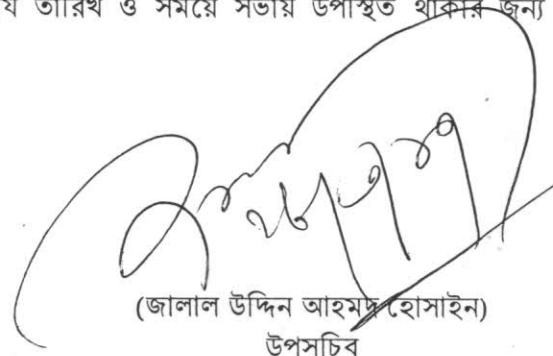 তারিখ ও সময়ে সভায় উপস্থিত থাকার জন্য
(জালাল উদ্দিন আহমদ হোসাইন)
উপসচিব